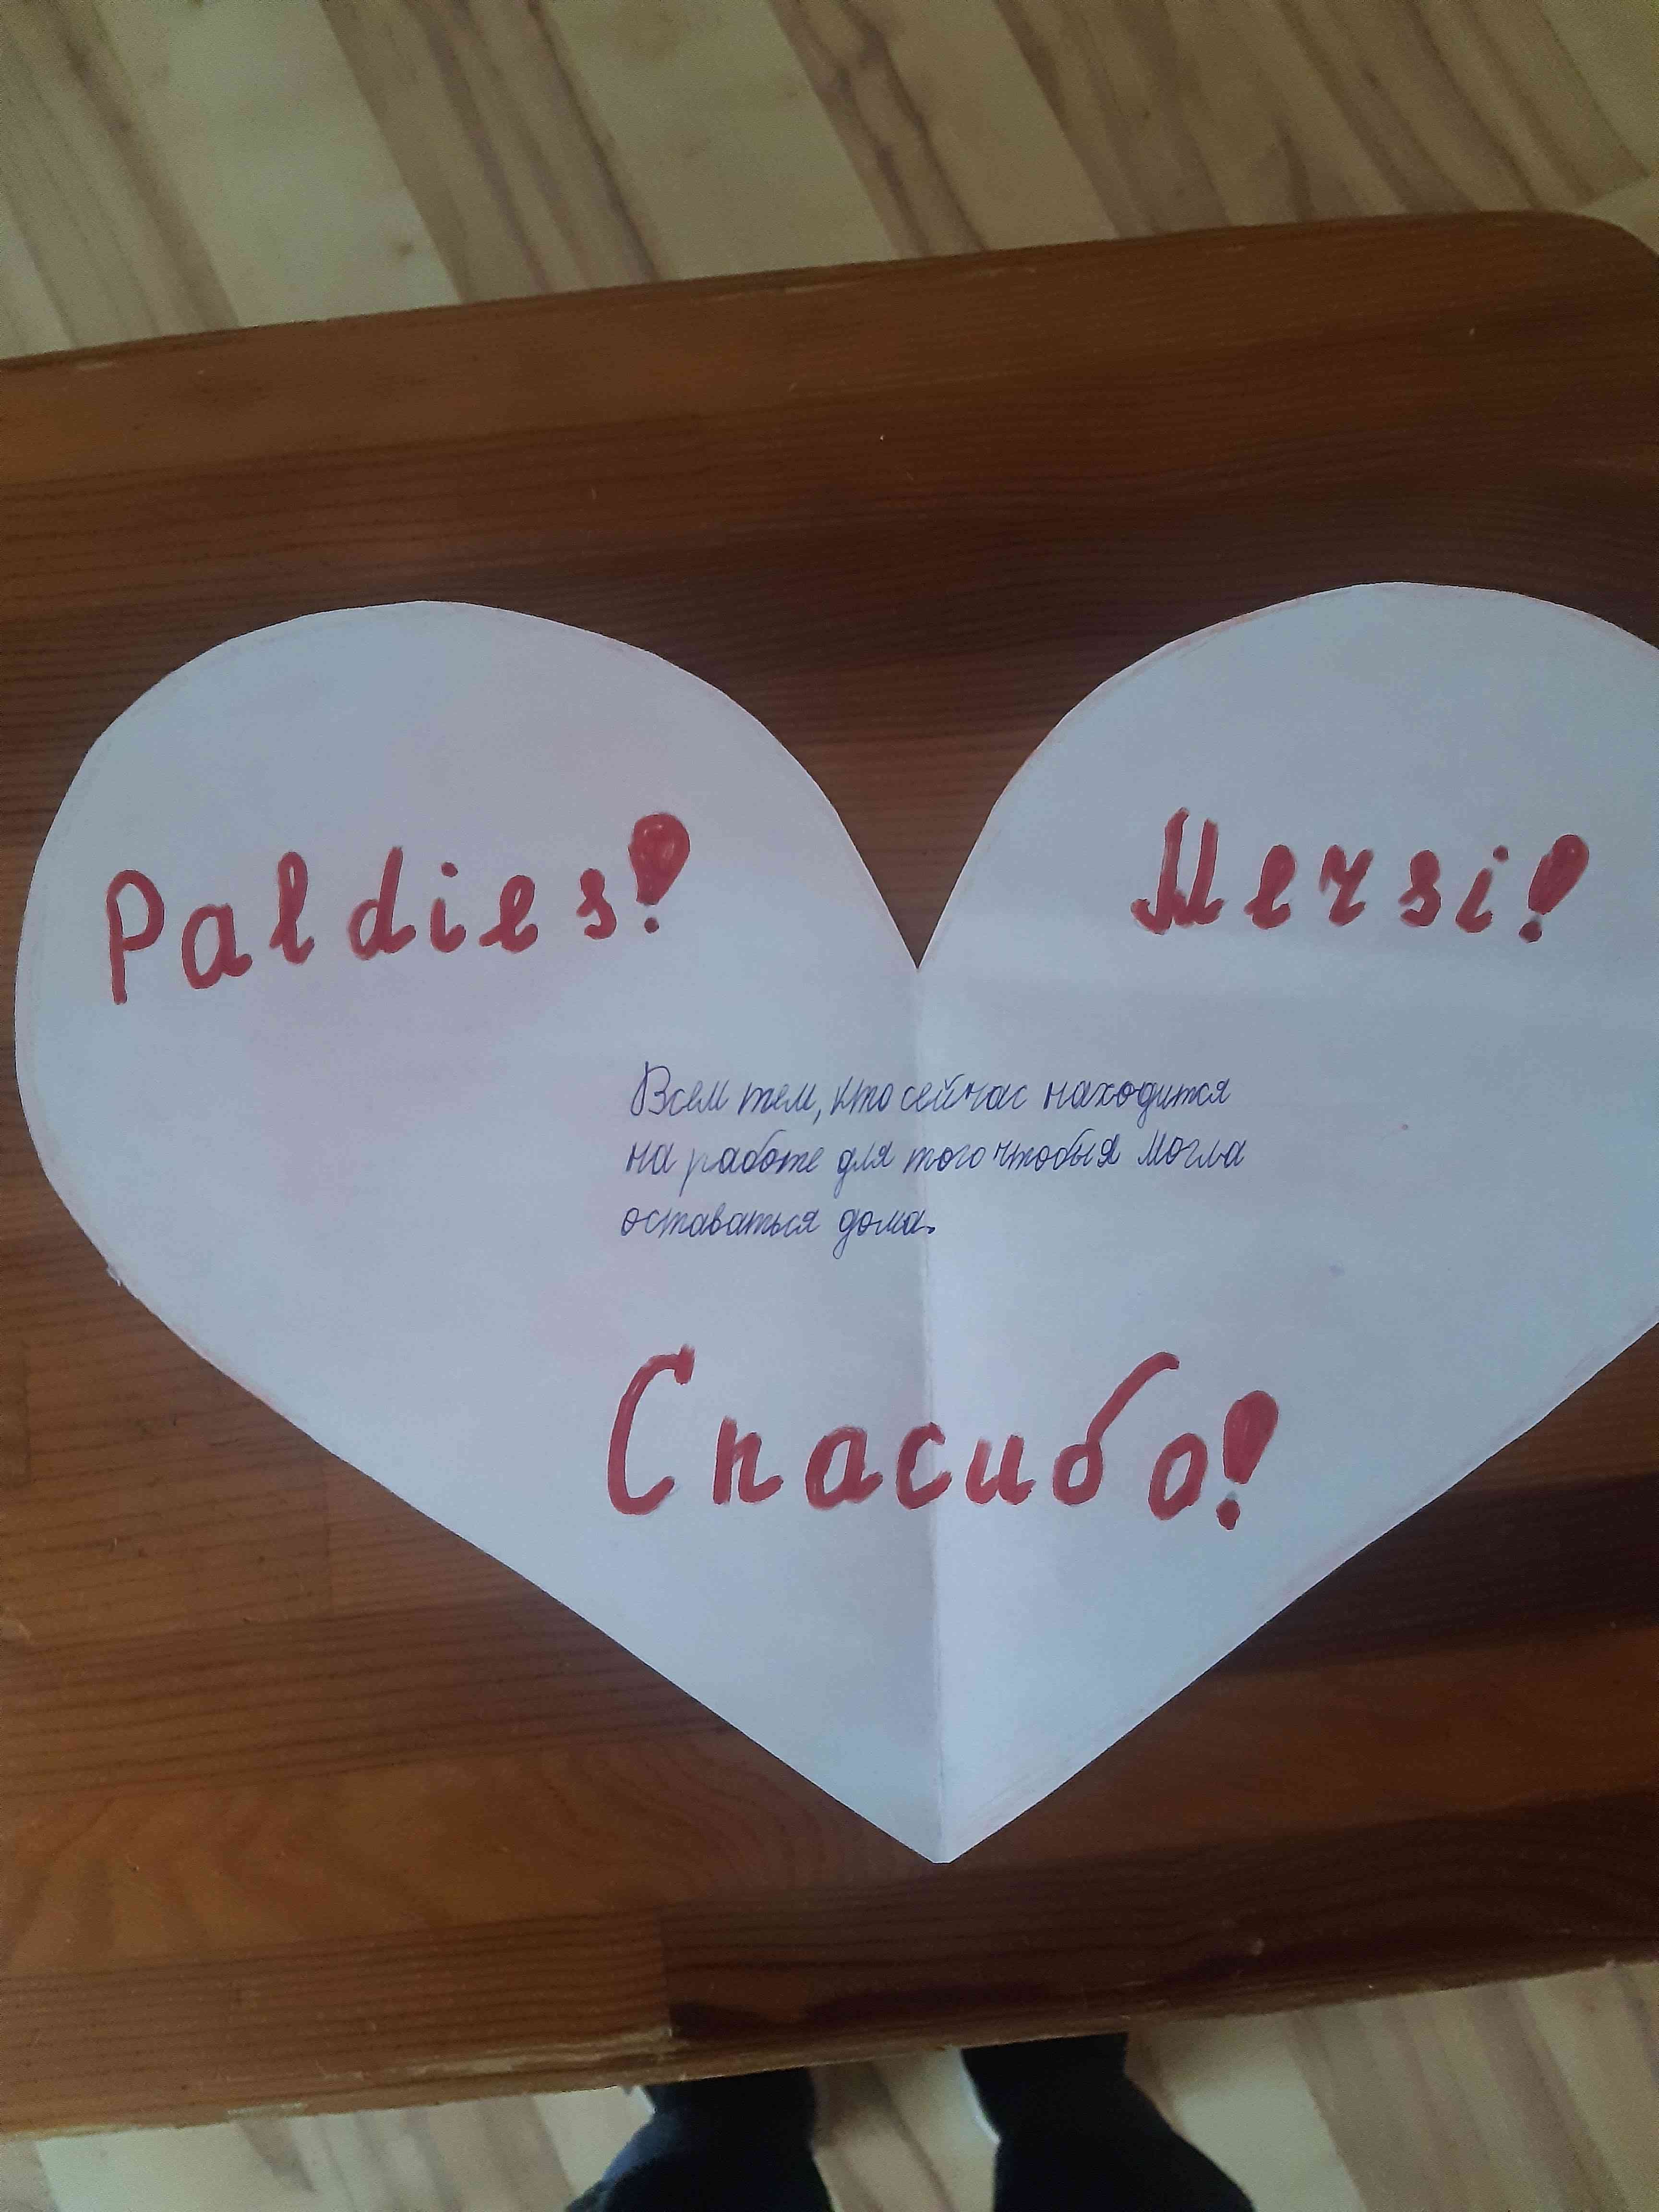 Paldies!
Mersi!
Всем тем, кто сейчас находится
на работе для того чтобы я могла
оставаться дома.
Спасибо!